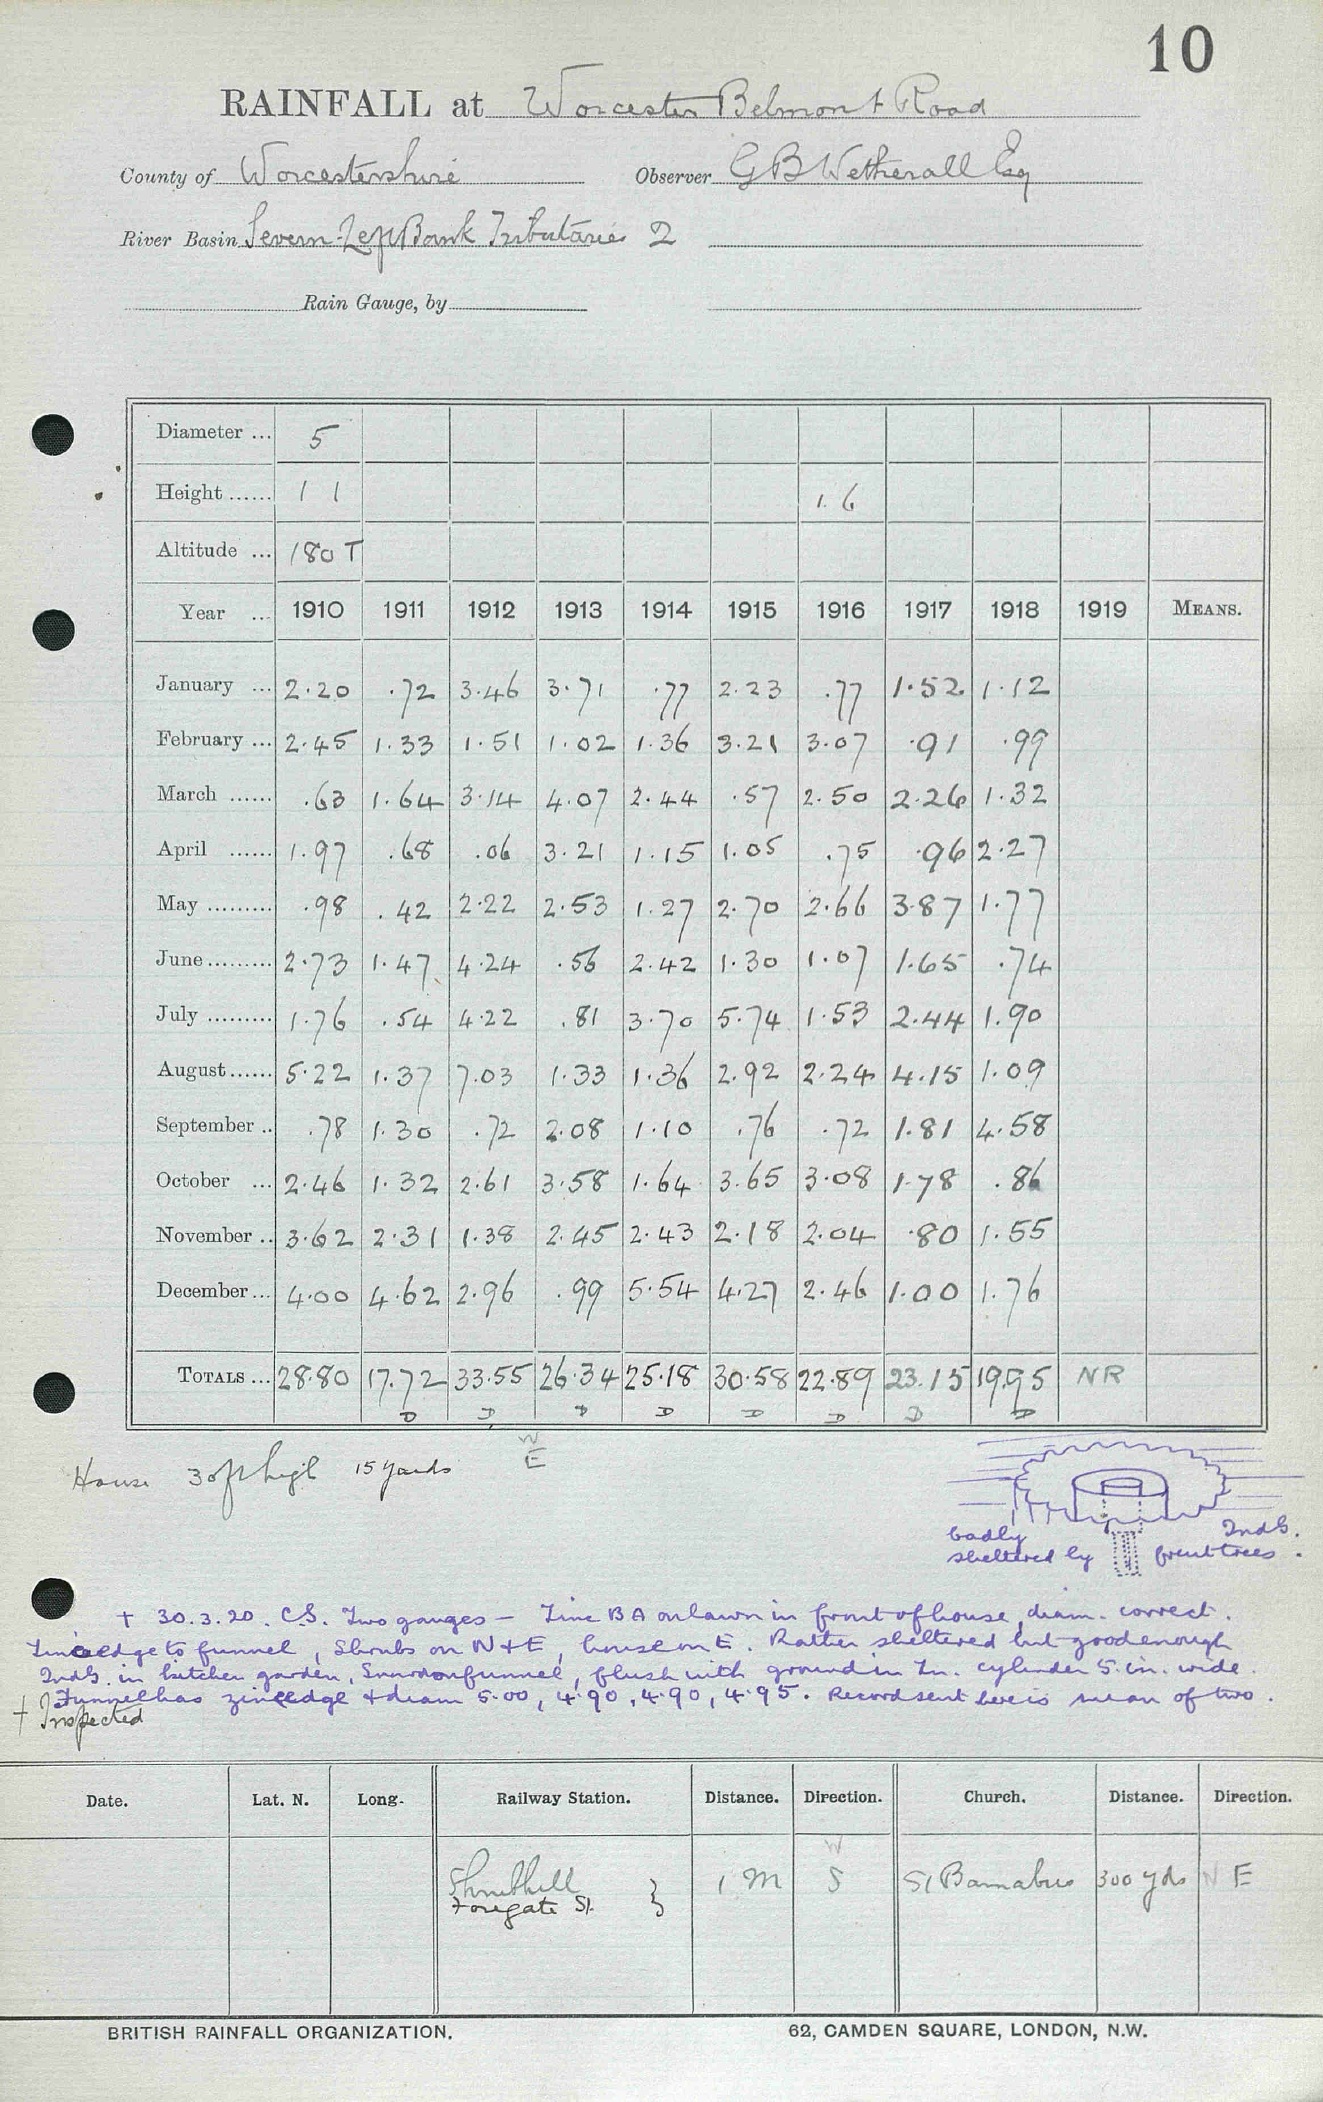 10
RAINFALL at Worcester Belmont Road
County of Worcestershire Observer G B Wetherall Esq
River Basin Severn-Left Bank Tributaries 2
Rain Gauge, by
Diameter ... 5
Height ...... 1 1 1. 6
Altitude ... 180 T
Year ... 1910 1911 1912 1913 1914 1915 1916 1917 1918 1919 MEANS.
January ... 2.20 .72 3.46 3.71 .77 2.23 .77 1.52 1.12
February ... 2.45 1.33 1.51 1.02 1.36 3.21 3.07 .91 .99
March ...... .63 1.64 3.14 4.07 2.44 .57 2.50 2.26 1.32
April ...... 1.97 .68 .06 3.21 1.15 1.05 .75 .96 2.27
May ......... .98 .42 2.22 2.53 1.27 2.70 2.66 3.87 1.77
June ......... 2.73 1.47 4.24 .56 2.42 1.30 1.07 1.65 .74
July ......... 1.76 .54 4.22 .81 3.70 5.74 1.53 2.44 1.90
August ...... 5.22 1.37 7.03 1.33 1.36 2.92 2.24 4.15 1.09
September .. .78 1.30 .72 2.08 1.10 .76 .72 1.81 4.58
October ... 2.46 1.32 2.61 3.58 1.64 3.65 3.08 1.78 .86
November .. 3.62 2.31 1.38 2.45 2.43 2.18 2.04 .80 1.55
December ... 4.00 4.62 2.96 .99 5.54 4.27 2.46 1.00 1.76
TOTALS ... 28.80 17.72 33.55 26.34 25.18 30.58 22.89 23.15 19.95 NR
D D D D D D D D
House 30 ft high 15 yards W E
badly 2nd G.
sheltered by fruit trees .
+ 30.3.20. C.S. Two gauges — Zinc B A on lawn in front of house, diam. correct.
edge to funnel, Shrubs on N & E, house on E. Rather sheltered but good enough
2nd G. in kitchen garden, Snowdon funnel, flush with ground in cylinder 5 in. wide.
Funnel has zinc edge & diam 5.00, 4.90, 4.90, 4.95. Record sent here is mean of two.
+ Inspected
Date. Lat. N. Long. Railway Station. Distance. Direction. Church. Distance. Direction.
Shrubhill
Foregate St. } 1 M W S St Barnabus 300 yds N E
BRITISH RAINFALL ORGANIZATION. 62, CAMDEN SQUARE, LONDON, N.W.